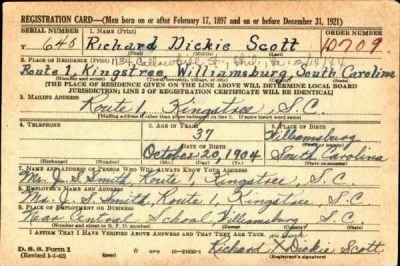 REGISTRATION CARD—(Men born on or after February 17, 1897 and on or before December 31, 1921)
SERIAL NUMBER 1. NAME (Print) ORDER NUMBER
T 640 Richard Dickie Scott 10709
2. PLACE OF RESIDENCE (Print)
Route 1 Kingstree Williamsburg South Carolina
[THE PLACE OF RESIDENCE GIVEN ON THE LINE ABOVE WILL DETERMINE LOCAL BOARD
JURISDICTION; LINE 2 OF REGISTRATION CERTIFICATE WILL BE IDENTICAL]
3. MAILING ADDRESS
Route 1, Kingstree, S.C.
[Mailing address if other than place indicated on line 2. If same insert word same]
4. TELEPHONE 5. AGE IN YEARS 6. PLACE OF BIRTH
37 Williamsburg
DATE OF BIRTH
October 20, 1904 South Carolina
7. NAME AND ADDRESS OF PERSON WHO WILL ALWAYS KNOW YOUR ADDRESS
Mr. J. S. Smith, Route 1, Kingstree, S.C.
8. EMPLOYER'S NAME AND ADDRESS
Mr. J. S. Smith, Route 1, Kingstree, S.C.
9. PLACE OF EMPLOYMENT OR BUSINESS
Near Central School, Williamsburg S.C.
I AFFIRM THAT I HAVE VERIFIED ABOVE ANSWERS AND THAT THEY ARE TRUE.
D. S. S. Form 1
(Revised 1-1-42) (over) Richard X Dickie Scott
(Registrant's signature)